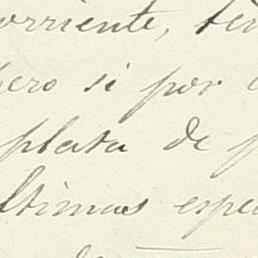 orriente, ten
pero si por
plata de p
ltimas espe
de